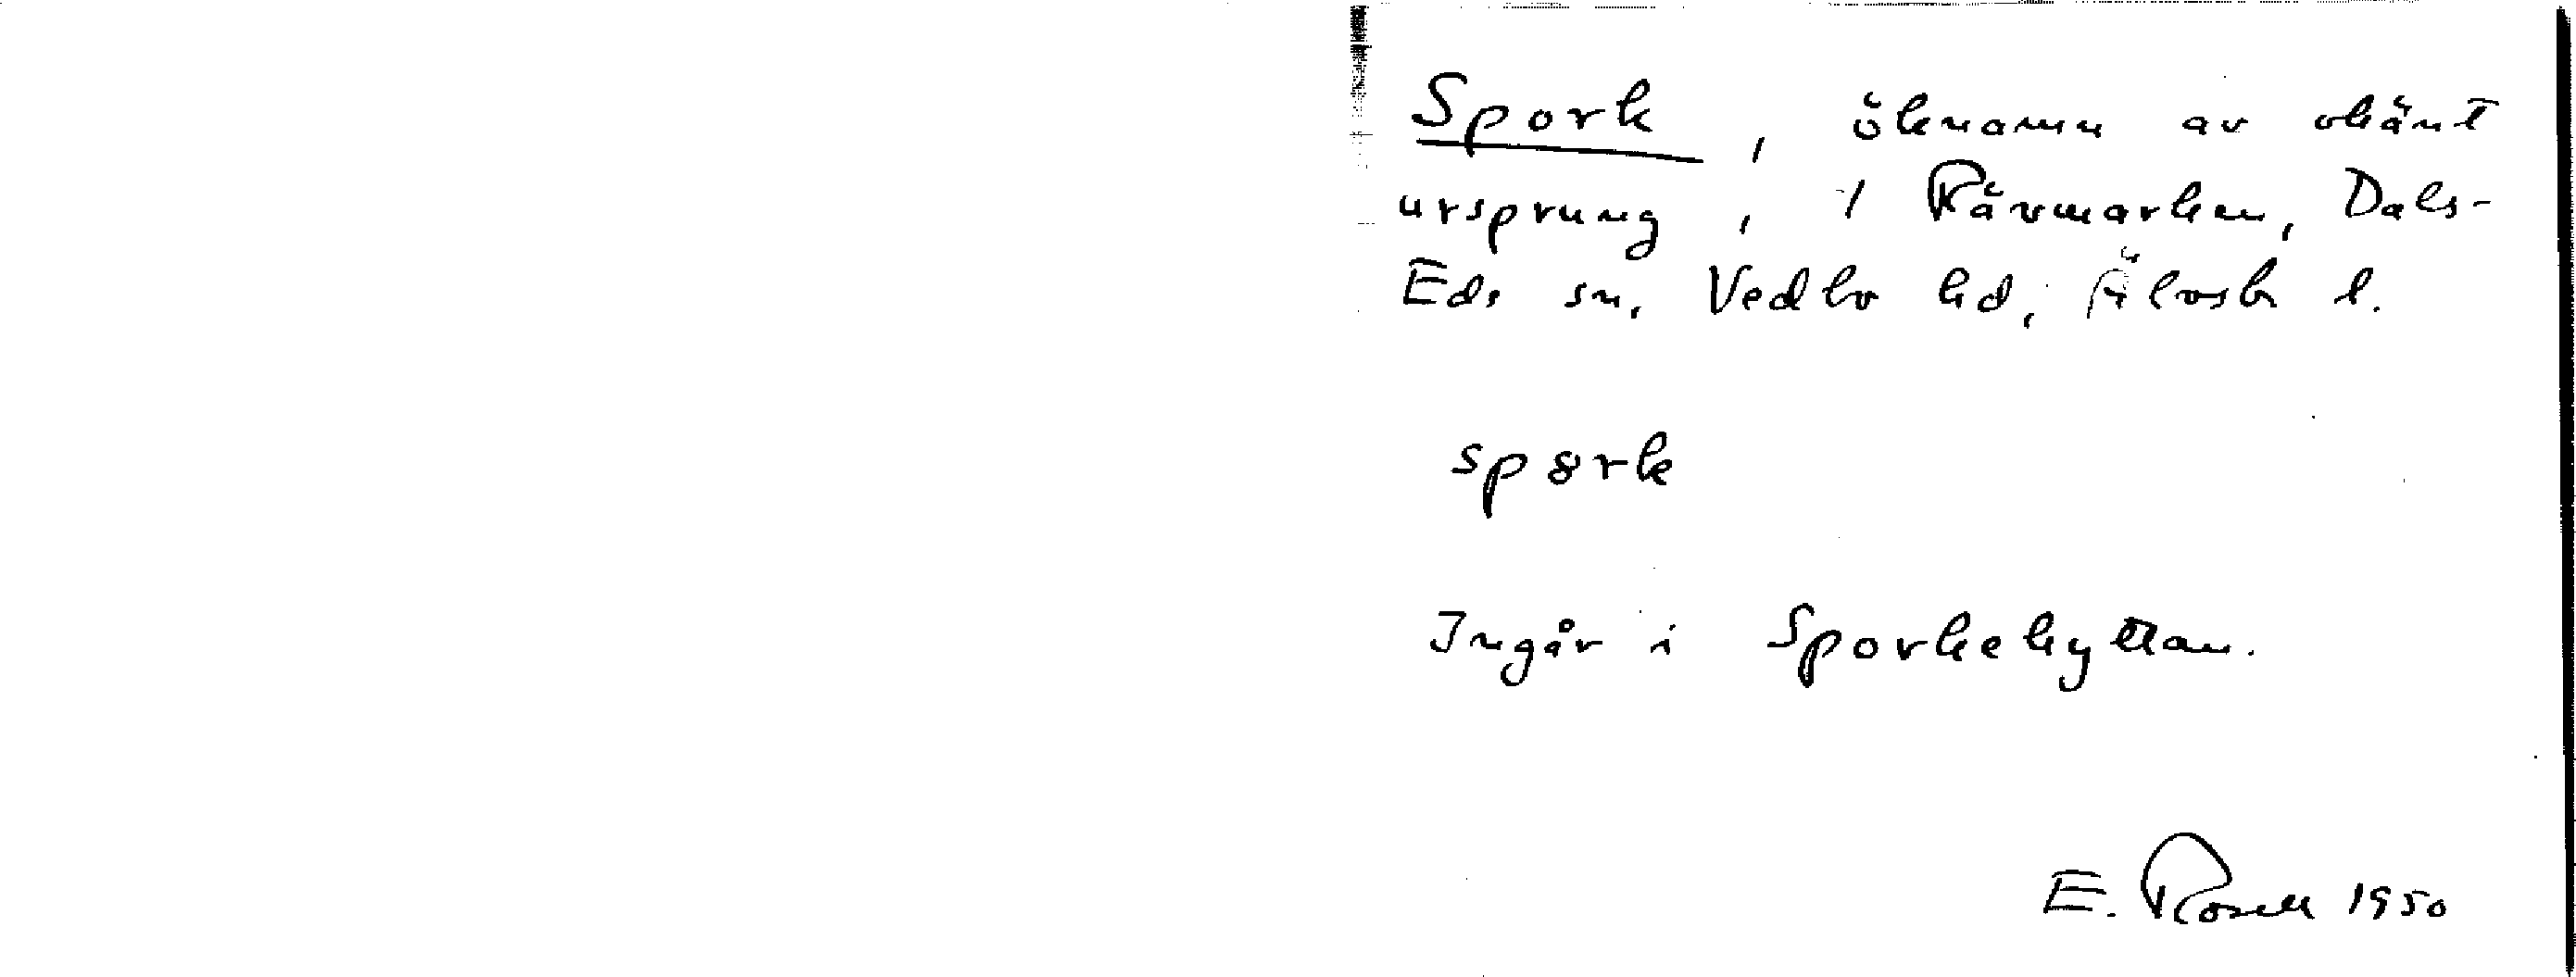 Spork, öknamn av okänt
ursprung, i Rävmarken, Dals-
Eds sn, Vedbo hd, Älvsb l.
spørk
Ingår i Sporkehyttan.
E. Rosell 1950